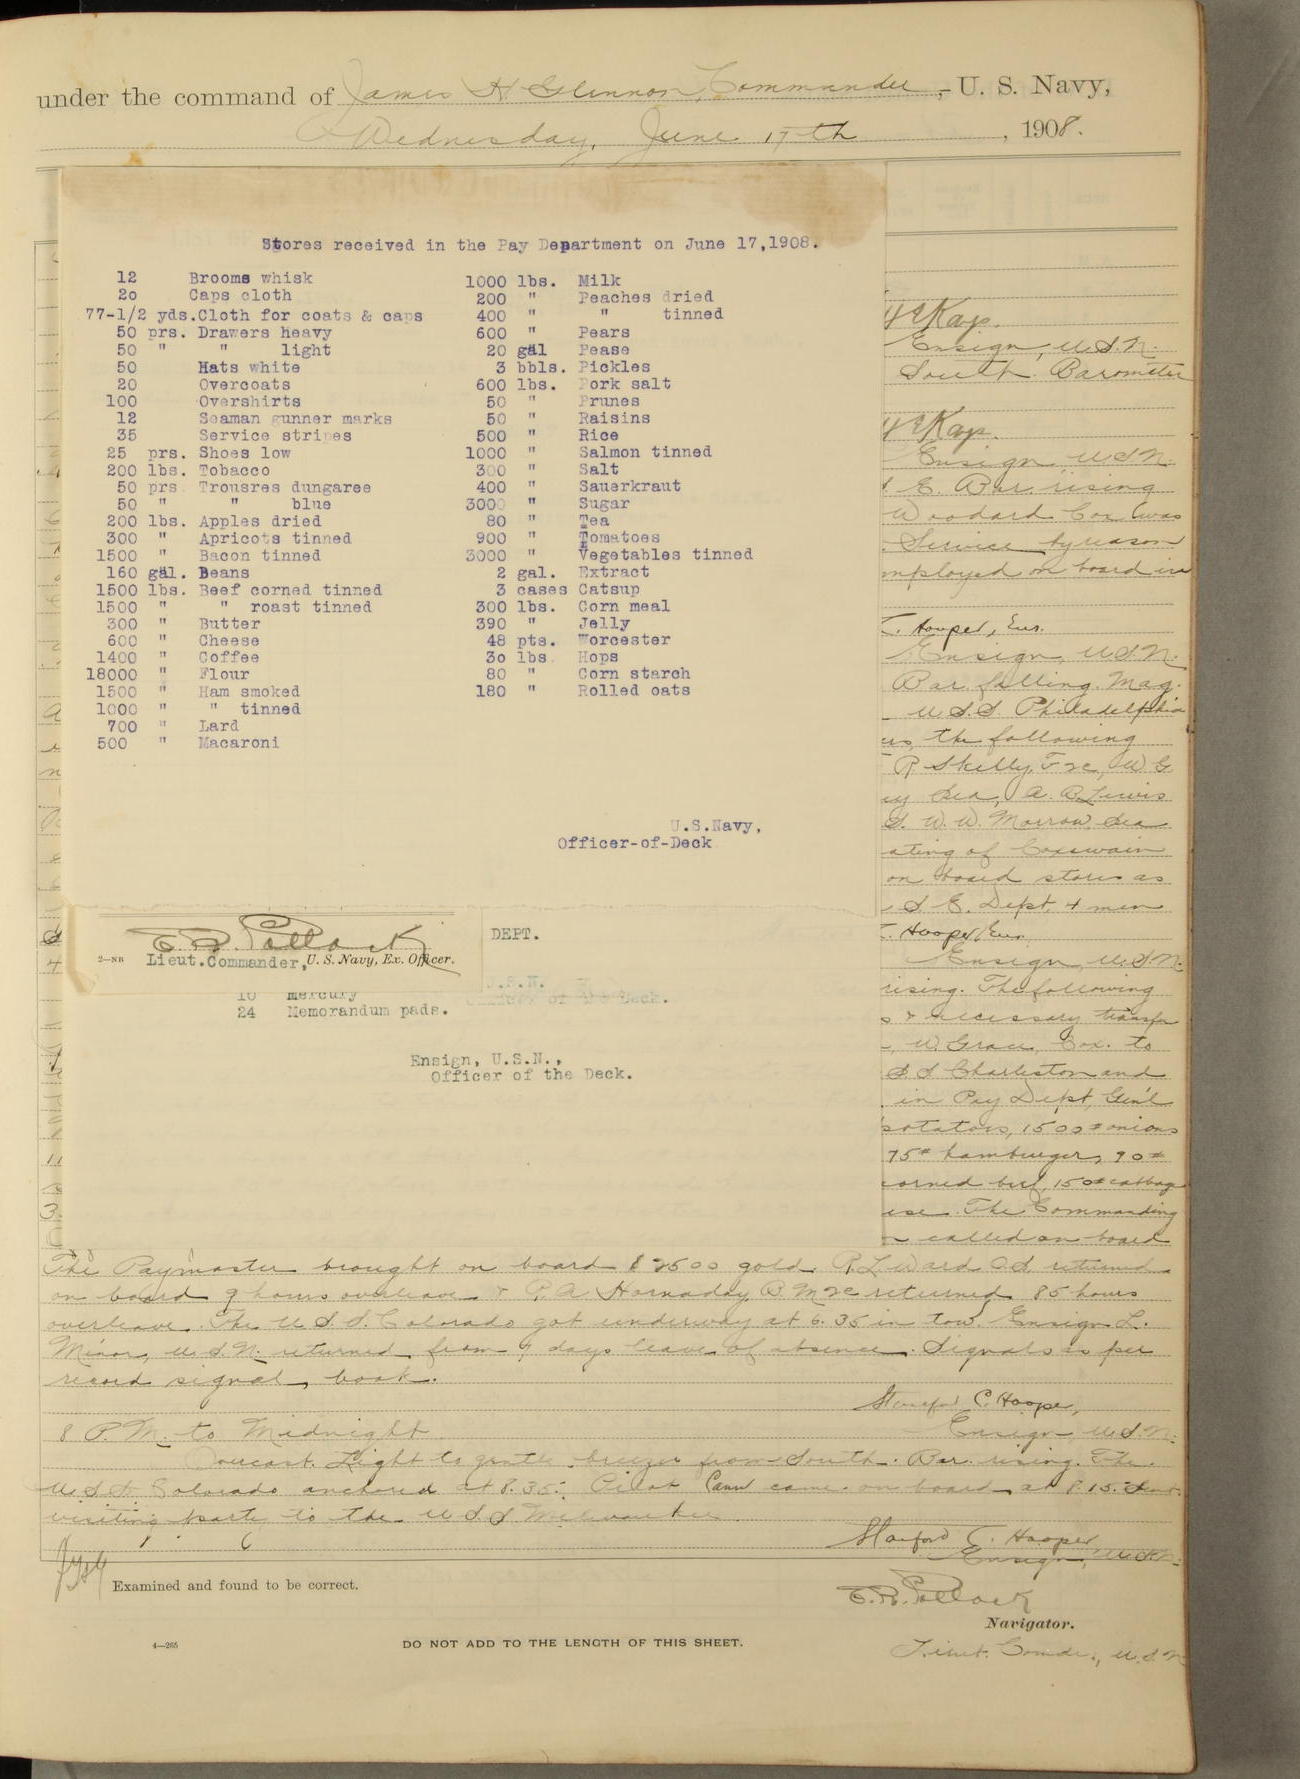 under the command of James H Glennon, Commander, U. S. Navy,
Wednesday, June 17th, 1908.
Stores received in the Pay Department on June 17,1908.
12 Brooms whisk
2o Caps cloth
77-1/2 yds.Cloth for coats & caps
50 prs. Drawers heavy
50 " " light
50 Hats white
20 Overcoats
100 Overshirts
12 Seaman gunner marks
35 Service stripes
25 prs. Shoes low
200 lbs. Tobacco
50 prs Trousres dungaree
50 " " blue
200 lbs. Apples dried
300 " Apricots tinned
1500 " Bacon tinned
160 gal. Beans
1500 lbs. Beef corned tinned
1500 " " roast tinned
300 " Butter
600 " Cheese
1400 " Coffee
18000 " Flour
1500 " Ham smoked
1000 " " tinned
700 " Lard
500 " Macaroni
1000 lbs. Milk
200 " Peaches dried
400 " " tinned
600 " Pears
20 gal Pease
3 bbls. Pickles
600 lbs. Pork salt
50 " Prunes
50 " Raisins
500 " Rice
1000 " Salmon tinned
300 " Salt
400 " Sauerkraut
3000 " Sugar
80 " Tea
900 " Tomatoes
3000 " Vegetables tinned
2 gal. Extract
3 cases Catsup
300 lbs. Corn meal
390 " Jelly
48 pts. Worcester
3o lbs Hops
80 " Corn starch
180 " Rolled oats
U.S.Navy,
Officer-of-Deck
DEPT.
E. R. Pollock
2—NB Lieut.Commander, U. S. Navy, Ex. Officer.
U.S.N.
Officer of the Deck.
10 Mercury
24 Memorandum pads.
Ensign, U.S.N.,
Officer of the Deck.
Kap.
Ensign, U.S.N.
South. Barometer
Kap.
Ensign U.S.N.
E. Bar. rising
Woodard Cox (was
Service by reason
employed on board in
C. Hooper, Ens.
Ensign, U.S.N.
Bar. falling. Mag.
U.S.S. Philadelphia
the following
R Skelly, F2c, W G
Sea, A. B. Lewis
W. W. Morrow, Sea
ating of Coxswain
on board stores as
S. E. Dept. 4 men
C. Hooper, Ens.
Ensign, U.S.N.
rising. The following
& necessary transfer
W. Grace, Cox. to
S S Charleston and
in Pay Dept, Gen'l
potatoes, 1500# onions
75# hamburger, 90#
corned beef, 150# cabbage
The Commanding
called on board
The Paymaster brought on board $2500 gold. R L Ward O.S returned
on board 9 hours overleave & P. A Hornaday B. M 2c returned 85 hours
overleave. The U.S.S. Colorado got underway at 6.35 in tow. Ensign L.
Minor, U.S.N. returned from 4 days leave of absence. Signals as per
record signal book.
Stanford C. Hooper,
Ensign, U.S.N.
8 P.M. to Midnight
Overcast. Light to gentle breezes from South. Bar. rising. The
U.S.S. Colorado anchored at 8.35. Pilot came on board at 8.15. Sent
visiting party to the U S S Milwaukee.
Stanford C. Hooper,
Ensign, U.S.N.
Examined and found to be correct.
E. R. Pollock
Navigator.
4—265
DO NOT ADD TO THE LENGTH OF THIS SHEET.
Lieut. Comdr., U.S.N